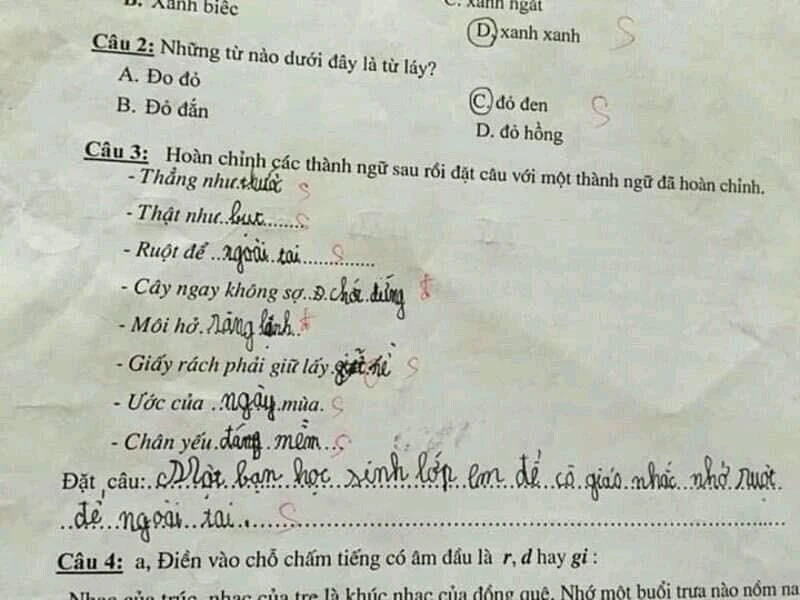 B. Xanh biếc
C. xanh ngắt
D. xanh xanh S
Câu 2: Những từ nào dưới đây là từ láy?
A. Đo đỏ
B. Đỏ đắn
C. đỏ đen S
D. đỏ hồng
Câu 3: Hoàn chỉnh các thành ngữ sau rồi đặt câu với một thành ngữ đã hoàn chỉnh.
- Thẳng như..thước S
- Thật như..bụt........ S
- Ruột để ..ngoài..tai.............. S
- Cây ngay không sợ..Đ.chết đứng đ
- Môi hở.răng lạnh.. đ
- Giấy rách phải giữ lấy. S
- Ước của ..ngày.mùa. S
- Chân yếu.đáng..mềm... S
Đặt câu:..Một..bạn..học..sinh lớp..em..để..cô giáo nhắc..nhở ruột
..để..ngoài..tai.... S
Câu 4: a, Điền vào chỗ chấm tiếng có âm đầu là r, d hay gi :
Nhạc của trúc, nhạc của tre là khúc nhạc của đồng quê. Nhớ một buổi trưa nào nồm na